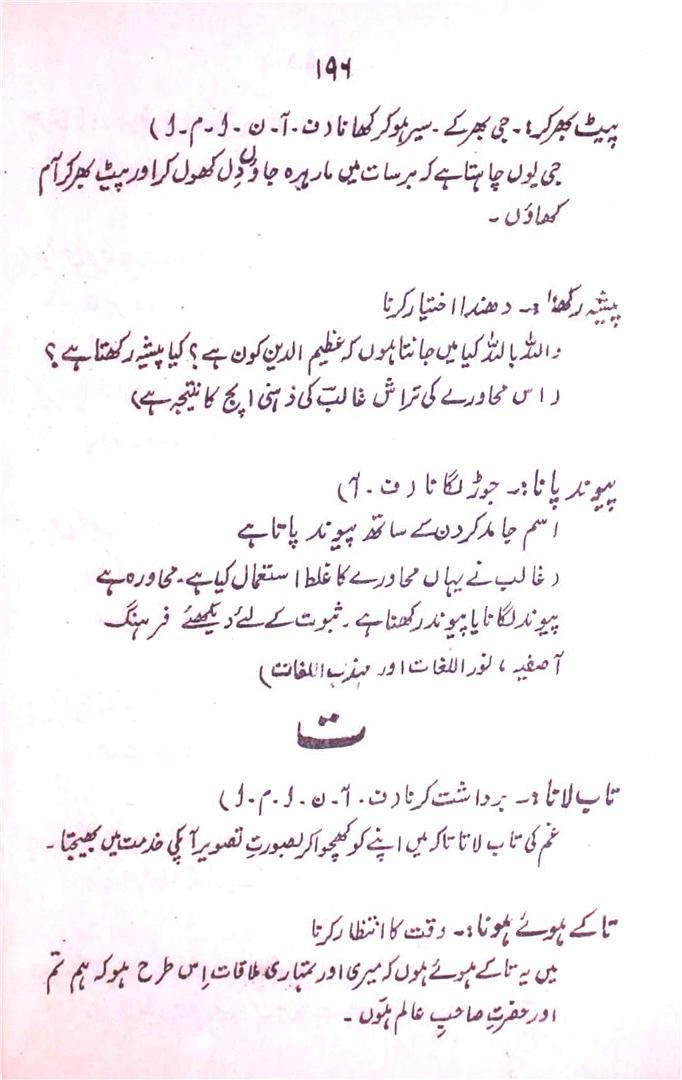 ۱۹۶
پیٹ بھر کر:۔ جی بھر کے ۔ سیر ہو کر کھانا (ف ۔ آ ۔ ن ۔ ا ۔ م ۔ ا)
جی یوں چاہتا ہے کہ برسات میں مارہرہ جاؤں دل کھول کر اور پیٹ بھر کر آم
کھاؤں ۔
پیشہ رکھنا:۔ دھندا اختیار کرنا
واللہ باللہ کیا میں جانتا ہوں کہ عظیم الدین کون ہے؟ کیا پیشہ رکھتا ہے؟
(اس محاورے کی تراش غالبؔ کی ذہنی اپج کا نتیجہ ہے)
پیوند پانا:۔ جوڑ لگانا (ف ۔ آ)
اسم جامد کردن کے ساتھ پیوند پاتا ہے
(غالب نے یہاں محاورے کا غلط استعمال کیا ہے ۔ محاورہ ہے
پیوند لگانا یا پیوند رکھنا ہے ۔ ثبوت کے لئے دیکھئے فرہنگ
آصفیہ، نور اللغات اور مہذب اللغات)
ت
تاب لانا:۔ برداشت کرنا (ف ۔ آ ۔ ن ۔ ا ۔ م ۔ ا)
غم کی تاب لاتا تاکہ میں اپنے کو کھچوا کر بصورتِ تصویر آپکی خدمت میں بھیجتا ۔
تاکے ہوئے ہونا:۔ وقت کا انتظار کرنا
میں یہ تاکے ہوئے ہوں کہ میری اور تمہاری ملاقات اِس طرح ہو کہ ہم تم
اور حضرتِ صاحبِ عالم ہوں ۔